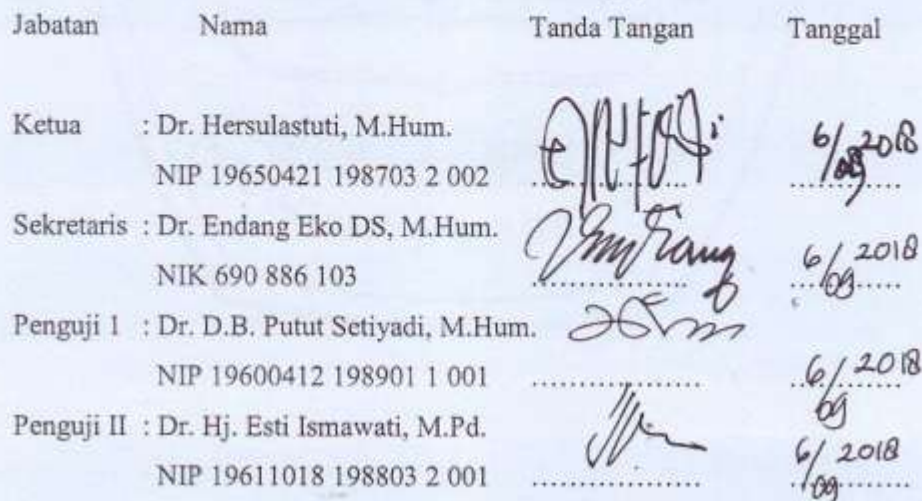 Jabatan Nama Tanda Tangan Tanggal
Ketua : Dr. Hersulastuti, M.Hum.
NIP 19650421 198703 2 002 .................. 6/09 2018
Sekretaris : Dr. Endang Eko DS, M.Hum.
NIK 690 886 103 .................. 6/09 2018
Penguji 1 : Dr. D.B. Putut Setiyadi, M.Hum.
NIP 19600412 198901 1 001 .................. 6/09 2018
Penguji II : Dr. Hj. Esti Ismawati, M.Pd.
NIP 19611018 198803 2 001 .................. 6/09 2018